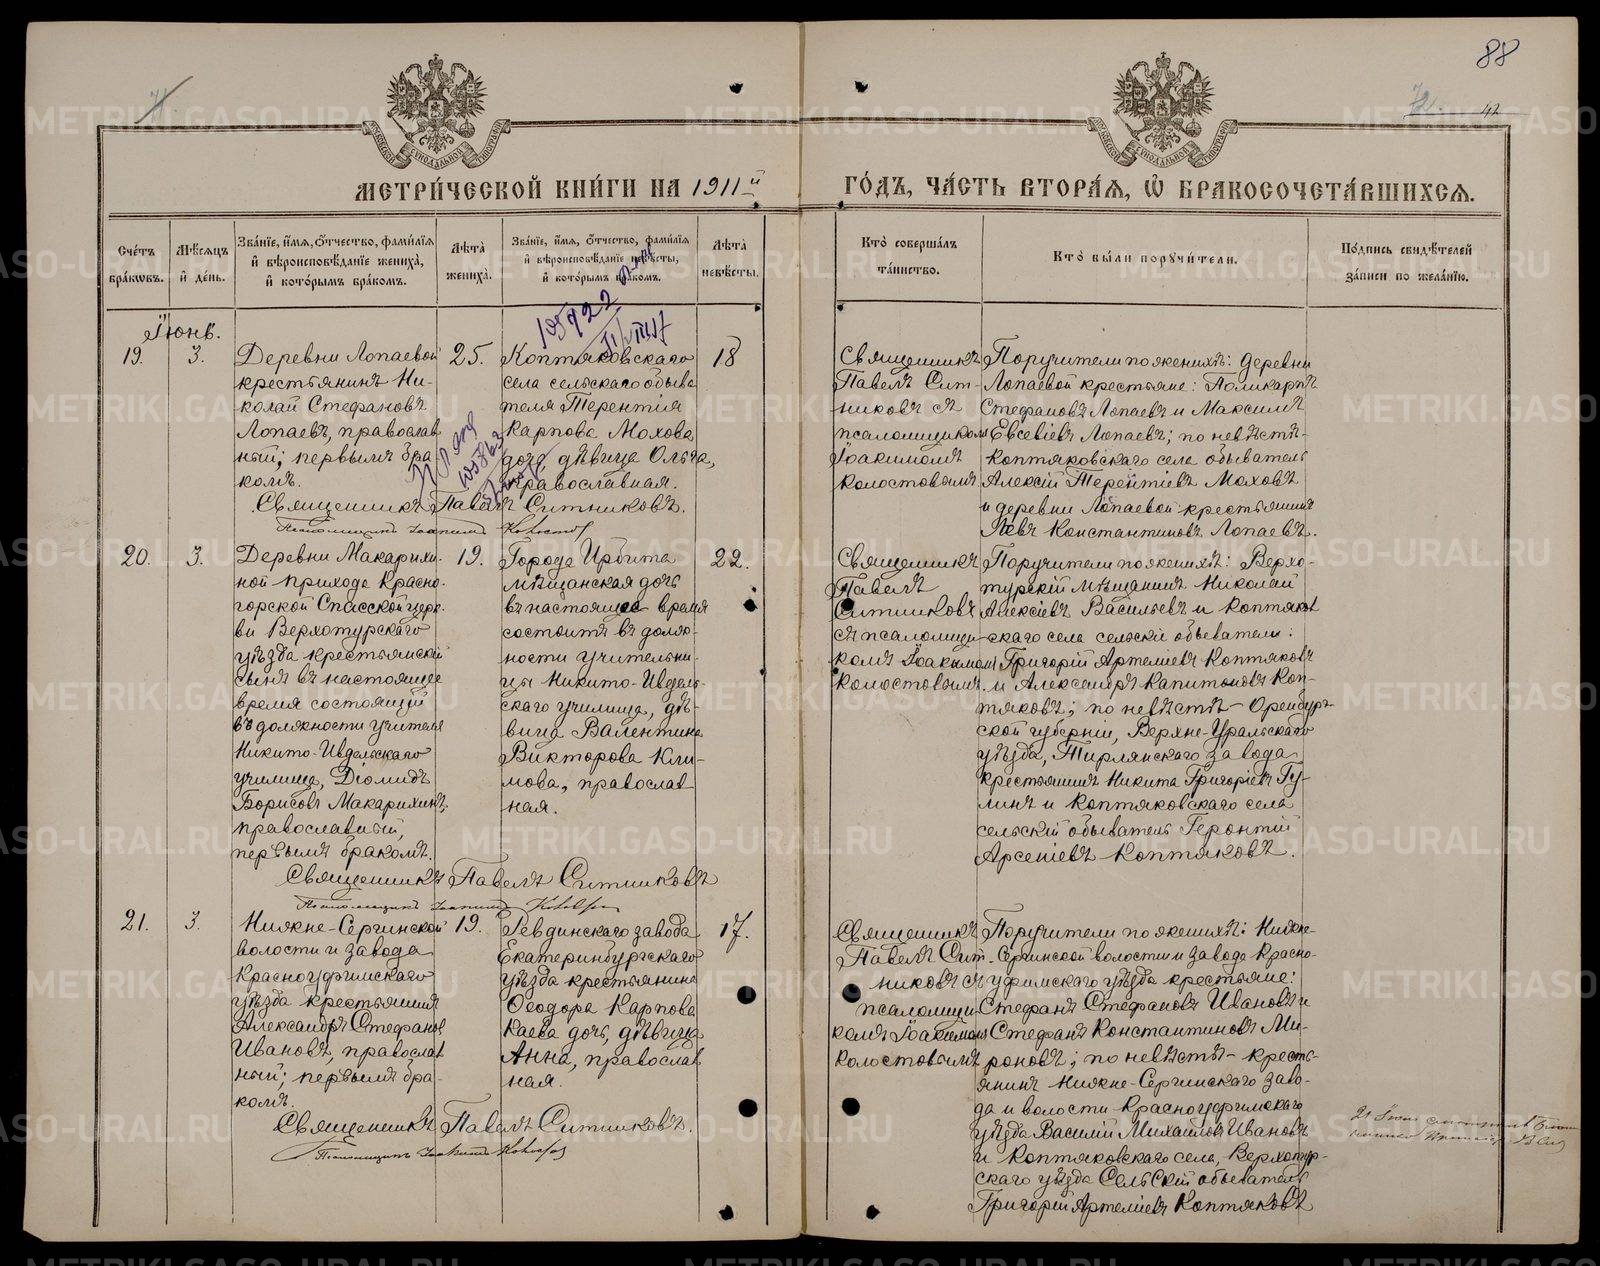 88
42
МЕТРИ́ЧЕСКОЙ КНИ́ГИ НА 1911й
ГО́ДЪ, ЧА́СТЬ ВТОРА́Я, Ѡ БРАКОСОЧЕТА́ВШИХСЯ.
Сче́тъ бра́кѡвъ.
Мѣ́сяцъ и҆ де́нь.
Зва́нїе, и҆́мя, ѻ҆́тчество, фами́лїя и҆ вѣроисповѣ́данїе жениха̀, и҆ кото́рымъ бра́комъ.
Лѣта̀ жениха̀.
Зва́нїе, и҆́мя, ѻ҆́тчество, фами́лїя и҆ вѣроисповѣ́данїе невѣ́сты, и҆ кото́рымъ бра́комъ.
Лѣта̀ невѣ́сты.
Кто̀ соверша́лъ та́инство.
Кто̀ бы́ли порꙋчи́тели.
По́дпись свидѣ́телей за́писи по жела́нїю.
Іюнь.
19.
3.
Деревни Лопаевой
крестьянинъ Ни-
колай Стефановъ
Лопаевъ, православ
ный; первымъ бра
комъ.
25.
Коптяковскаго
села сельскаго обыва
теля Терентія
Карпова Мохова
дочь, дѣвица Ольга,
православная.
18
Священникъ Павелъ Ситниковъ.
Псаломщикъ Іоакимъ Колосовъ
Священникъ
Павелъ Сит-
никовъ съ
псаломщикомъ
Іоакимомъ
Колостовымъ
Поручители по женихѣ: деревни
Лопаевой крестьяне: Поликарпъ
Стефановъ Лопаевъ и Максимъ
Евсевіевъ Лопаевъ; по невѣстѣ-
Коптяковскаго села обыватель
Алексій Терентіевъ Моховъ
и деревни Лопаевой крестьянинъ
Левъ Константиновъ Лопаевъ.
20.
3.
Деревни Макарихи-
ной прихода Красно-
горской Спасской церк-
ви Верхотурскаго
уѣзда крестьянскій
сынъ въ настоящее
время состоящій
въ должности учителя
Никито-Ивдельскаго
училища, Діомидъ
Борисовъ Макарихинъ,
православный,
первымъ бракомъ.
19.
Города Ирбита
мѣщанская дочь
въ настоящее время
состоитъ въ долж-
ности учительни-
цы Никито-Ивдель-
скаго училища, дѣ-
вица Валентина
Викторова Кли-
мова, православ
ная.
22.
Священникъ Павелъ Ситниковъ
Священникъ
Павелъ
Ситниковъ
съ псаломщи-
комъ Іоакимомъ
Колостовымъ.
Поручители по женихѣ: Верхо-
турскій мѣщанинъ Николай
Алексіевъ Васильевъ и Коптяков
скаго села сельскіе обыватели:
Григорій Артеміевъ Коптяковъ
и Александръ Капитоновъ Коп-
тяковъ; по невѣстѣ - Оренбург-
ской губерніи, Верхне-Уральскаго
уѣзда, Тирлянскаго завода
крестьянинъ Никита Григоріевъ Гу-
линъ и Коптяковскаго села
сельскій обыватель Геронтій
Арсеніевъ Коптяковъ.
21.
3.
Нижне-Сергинской
волости и завода
Красноуфимскаго
уѣзда крестьянинъ
Александръ Стефанов
Ивановъ, православ
ный; первымъ бра-
комъ.
19.
Ревдинскаго завода
Екатеринбургскаго
уѣзда крестьянина
Ѳеодора Карпова
Каева дочь, дѣвица
Анна, православ
ная.
17.
Священникъ Павелъ Ситниковъ.
Священникъ
Павелъ Сит-
никовъ съ
псаломщи
комъ Іоакимомъ
Колостовымъ
Поручители по женихѣ: Нижне-
Сергинской волости и завода Красно-
уфимскаго уѣзда крестьяне:
Стефанъ Стефановъ Ивановъ и
Стефанъ Константиновъ Ми-
роновъ; по невѣстѣ - кресть-
янинъ Нижне-Сергинскаго заво-
да и волости Красноуфимскаго
уѣзда Василій Михаиловъ Ивановъ
и Коптяковскаго села, Верхотур-
скаго уѣзда Сельскій обыватель
Григорій Артеміевъ Коптяковъ
METRIKI.GASO-URAL.RU